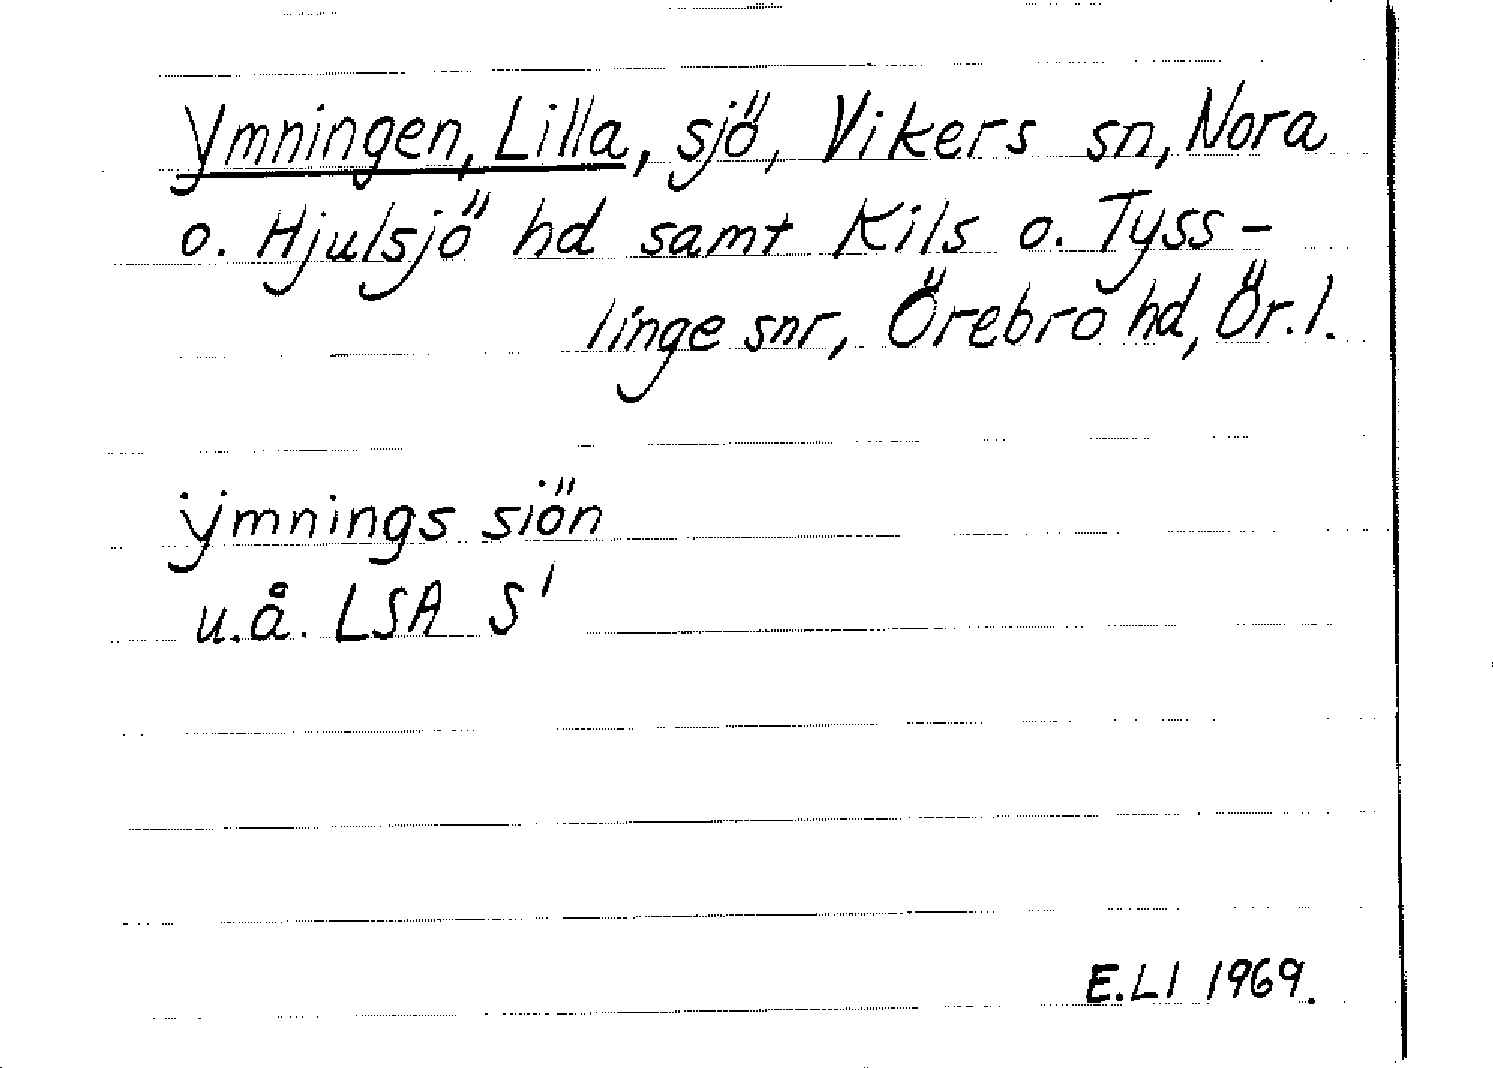 Ymningen, Lilla, sjö, Vikers sn, Nora
o. Hjulsjö hd samt Kils o. Tyss-
linge snr, Örebro hd, Ör.l.
ÿmnings siön
u.å. LSA S¹
E.LI 1969.